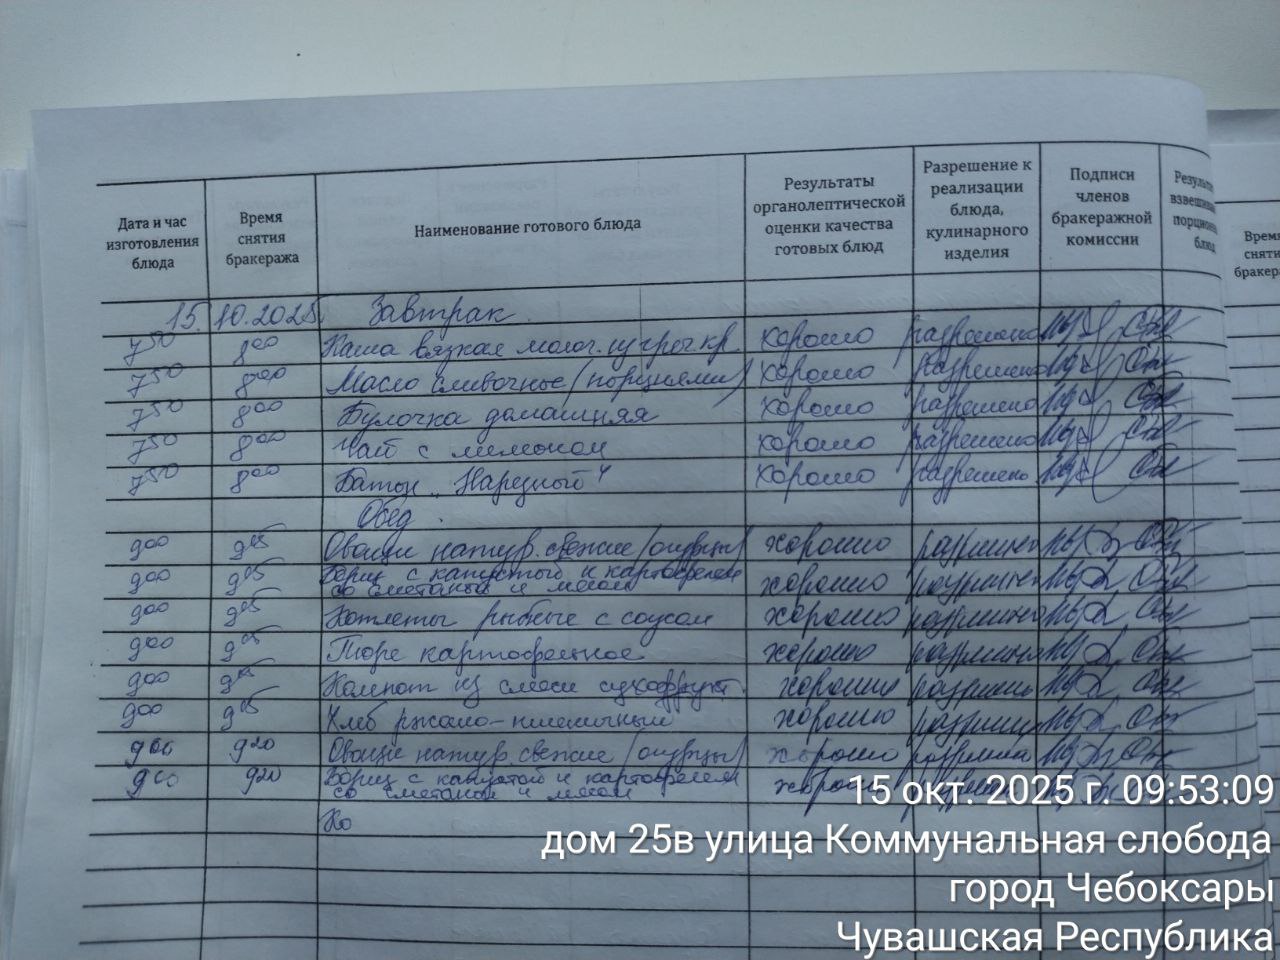 Дата и час изготовления блюда
Время снятия бракеража
Наименование готового блюда
Результаты органолептической оценки качества готовых блюд
Разрешение к реализации блюда, кулинарного изделия
Подписи членов бракеражной комиссии
Время
15.10.2025 Завтрак
7 50 8 00 Каша вязкая молоч. из греч. кр. хорошо разрешено
7 50 8 00 Масло сливочное (порциями) хорошо разрешено
7 50 8 00 Булочка домашняя хорошо разрешено
7 50 8 00 Чай с лимоном хорошо разрешено
7 50 8 00 Батон „Нарезной“ хорошо разрешено
Обед
9 00 9 05 Овощи натур. свежие (огурцы) хорошо разрешено
9 00 9 05 Борщ с капустой и картофелем
со сметаной и мясом хорошо разрешено
9 00 9 05 Котлеты рыбные с соусом хорошо разрешено
9 00 9 05 Пюре картофельное хорошо разрешено
9 00 9 05 Компот из смеси сухофрукт. хорошо разрешено
9 00 9 05 Хлеб ржано-пшеничный хорошо разрешено
9 00 9 20 Овощи натур. свежие (огурцы) хорошо разрешено
9 00 9 20 Борщ с капустой и картофелем
со сметаной и мясом
Ко
15 окт. 2025 г. 09:53:09
дом 25в улица Коммунальная слобода
город Чебоксары
Чувашская Республика